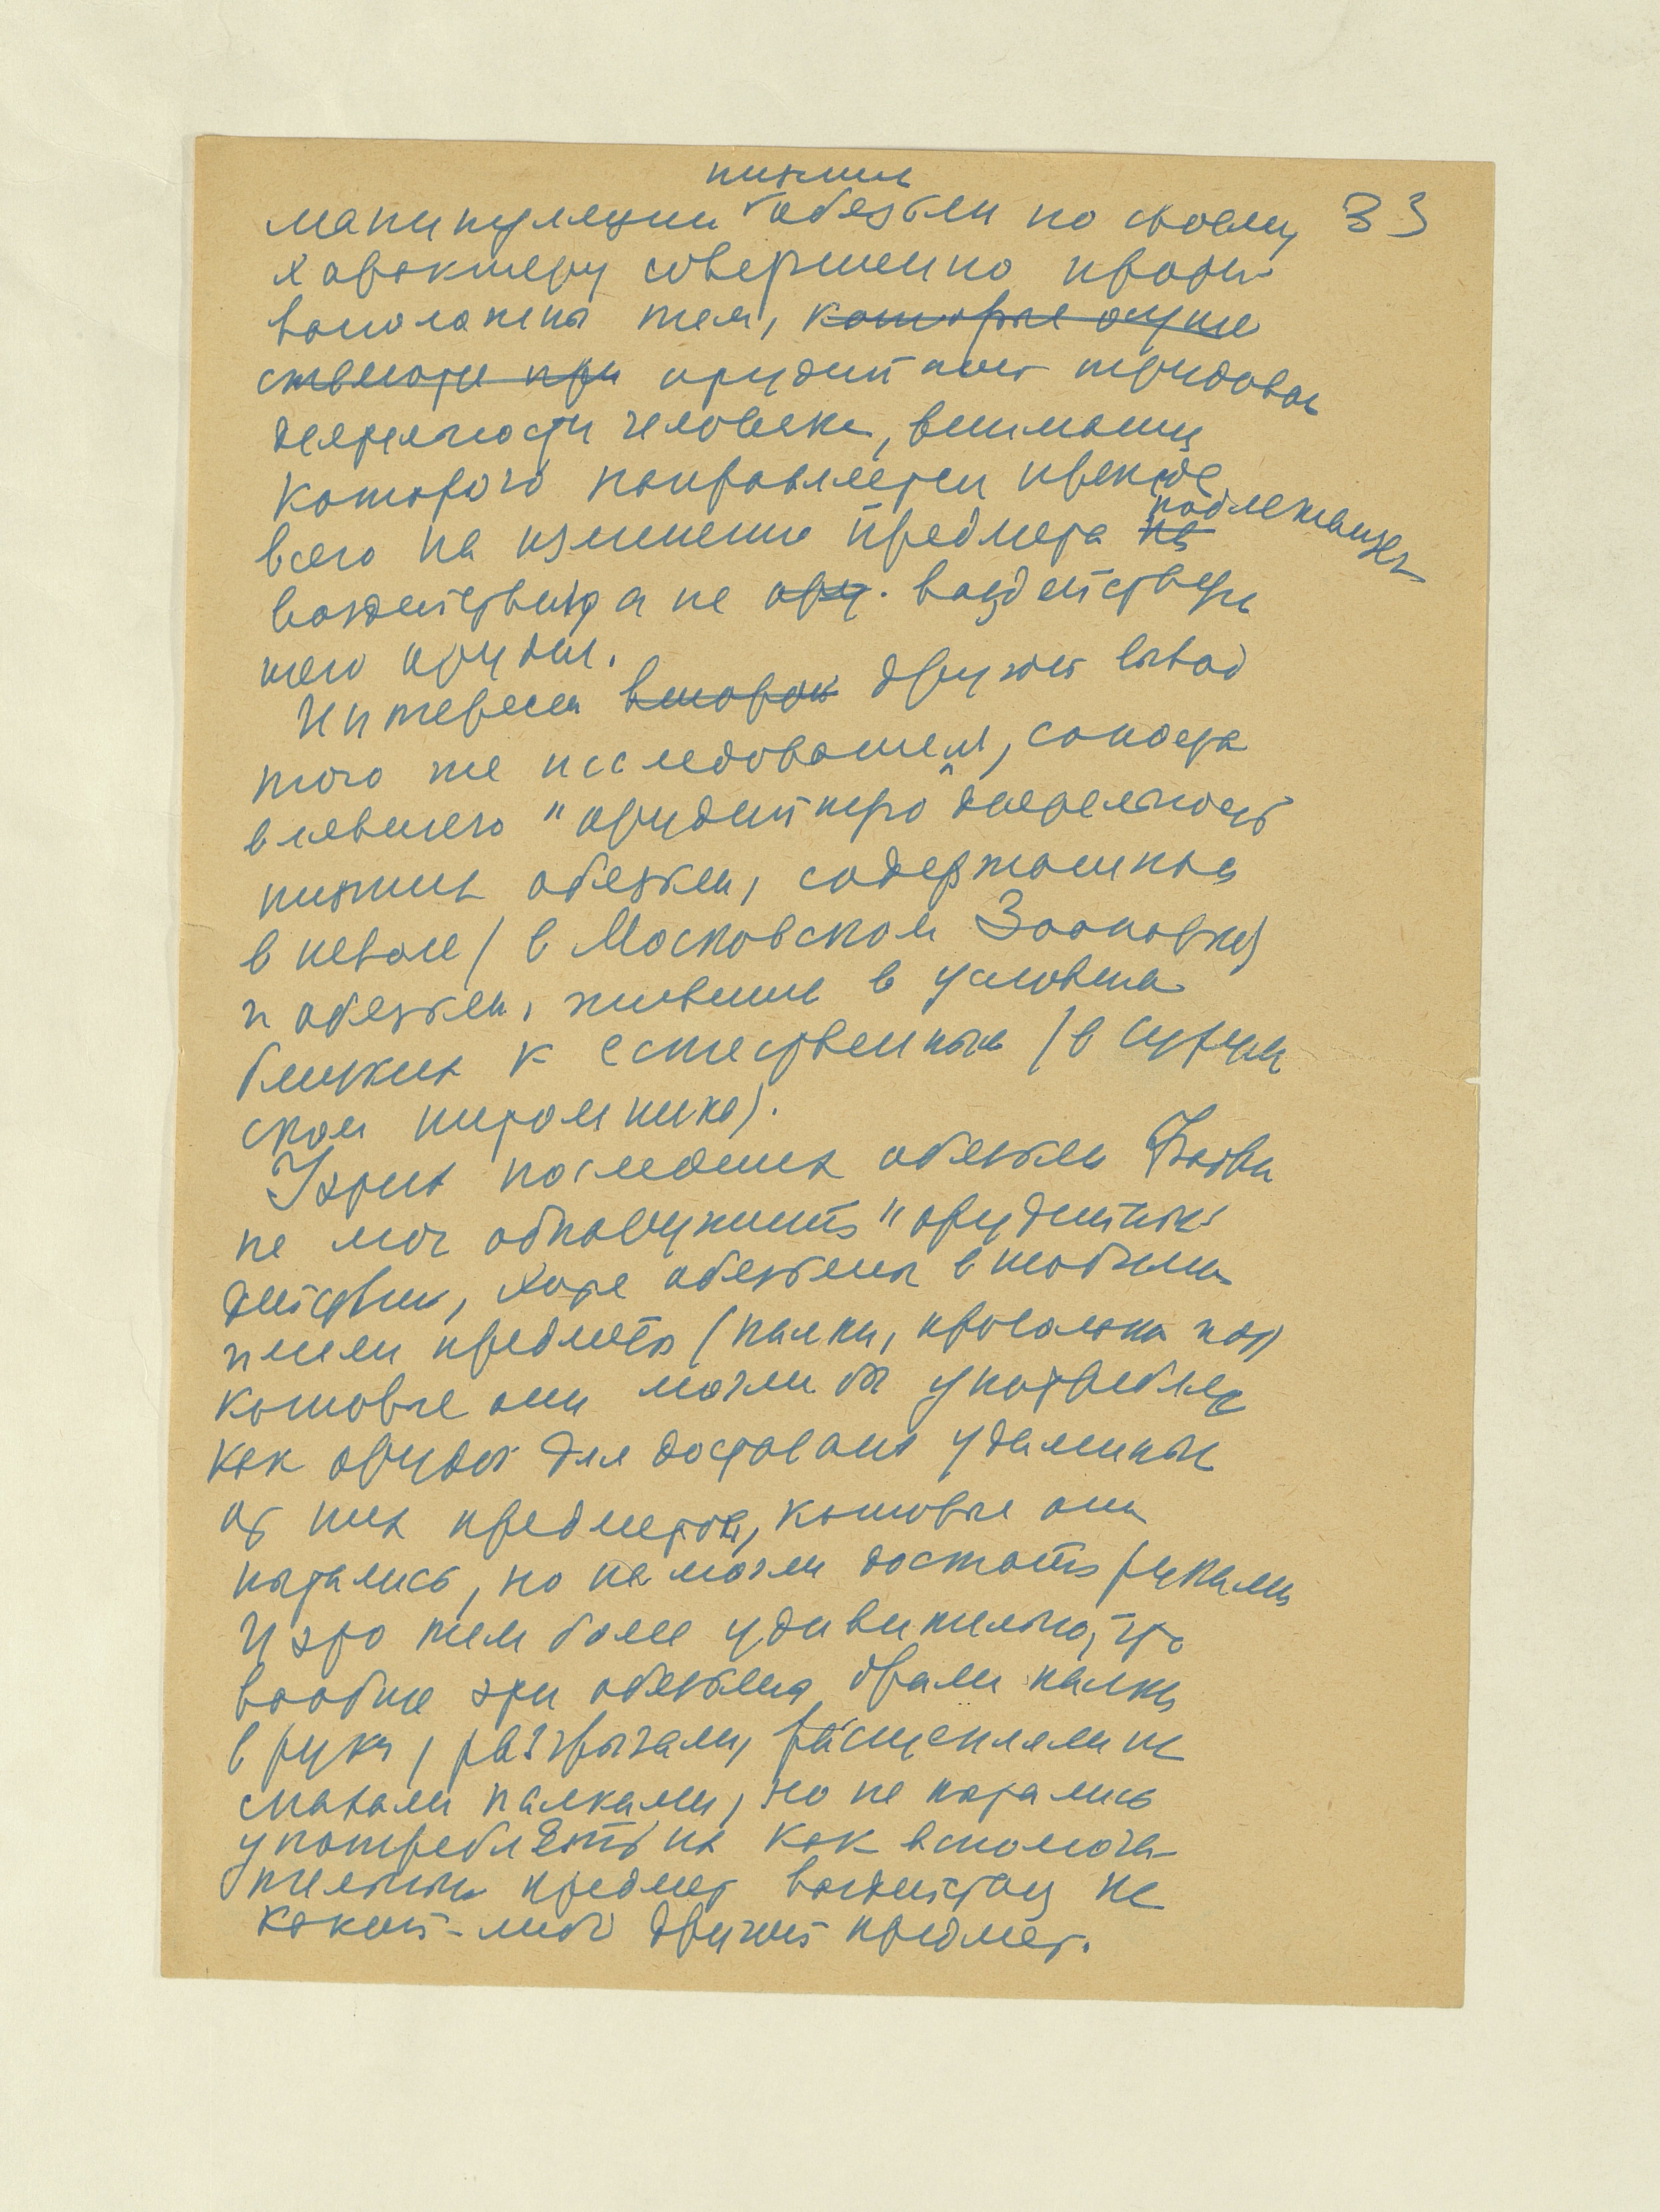 низших
манипуляции обезьян по своему 33
характеру совершенно проти-
воположны тем, которые осуще
ствляются при орудийной трудовой
деятельности человека, внимание
которого направляется прежде
подлежащего
всего на изменение предмета не
воздействию, а не ору. воздействую
щего орудия.
Интересен второй другой вывод
того же исследователя, сопоста
влявшего "орудийную деятельность
низших обезьян, содержащихся
в неволе (в Московском Зоопарке)
и обезьян, живших в условиях
близких к естественным (в Сухум
ском питомнике).
У этих последних обезьян
не мог обнаружить "орудийных
действий, хотя обезьяны в изобилии
имели предметы (палки, проволока)
которые они могли бы употреблять
как орудия для доставания удаленных
от них предметов, которые они
пытались, но не могли достать руками
И это тем более удивительно, что
вообще эти обезьяны брали палки
в руки, разгрызали, расщепляли и
махали палками, но не пытались
употреблять их как вспомога-
тельный предмет воздейств. на
какой-либо другой предмет.